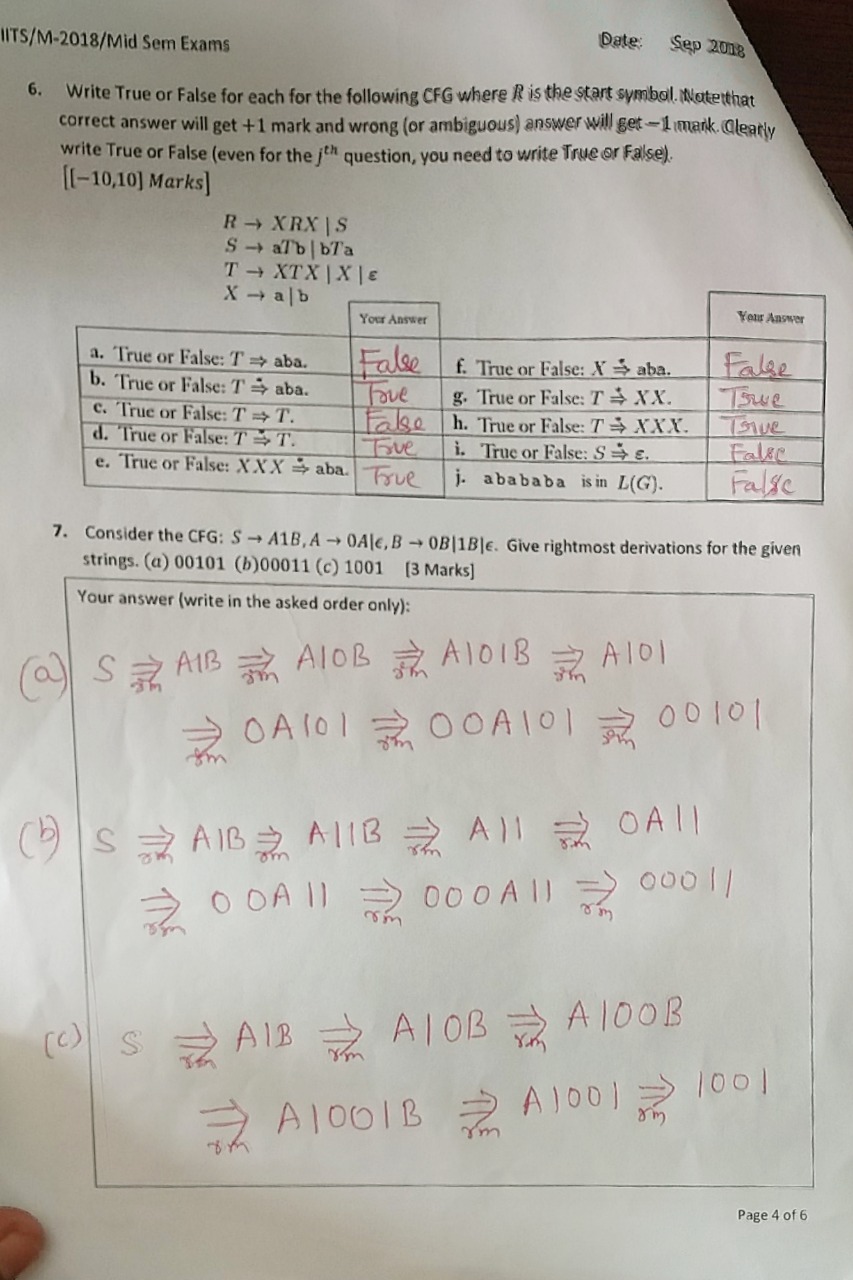 IITS/M-2018/Mid Sem Exams
Date: Sep 2018
6. Write True or False for each for the following CFG where R is the start symbol. Note that
correct answer will get +1 mark and wrong (or ambiguous) answer will get −1 mark. Clearly
write True or False (even for the jᵗʰ question, you need to write True or False).
[[−10,10] Marks]
R → XRX | S
S → aTb | bTa
T → XTX | X | ε
X → a | b
Your Answer
Your Answer
a. True or False: T ⇒ aba. False
f. True or False: X ⇒* aba. False
b. True or False: T ⇒* aba. True
g. True or False: T ⇒* XX. True
c. True or False: T ⇒ T. False
h. True or False: T ⇒* XXX. True
d. True or False: T ⇒* T. True
i. True or False: S ⇒* ε. False
e. True or False: XXX ⇒* aba. True
j. abababa is in L(G). False
7. Consider the CFG: S → A1B, A → 0A|ϵ, B → 0B|1B|ϵ. Give rightmost derivations for the given
strings. (a) 00101 (b)00011 (c) 1001 [3 Marks]
Your answer (write in the asked order only):
(a) S ⇒rm A1B ⇒rm A10B ⇒rm A101B ⇒rm A101
⇒rm 0A101 ⇒rm 00A101 ⇒rm 00101
(b) S ⇒rm A1B ⇒rm A11B ⇒rm A11 ⇒rm 0A11
⇒rm 00A11 ⇒rm 000A11 ⇒rm 00011
(c) S ⇒rm A1B ⇒rm A10B ⇒rm A100B
⇒rm A1001B ⇒rm A1001 ⇒rm 1001
Page 4 of 6